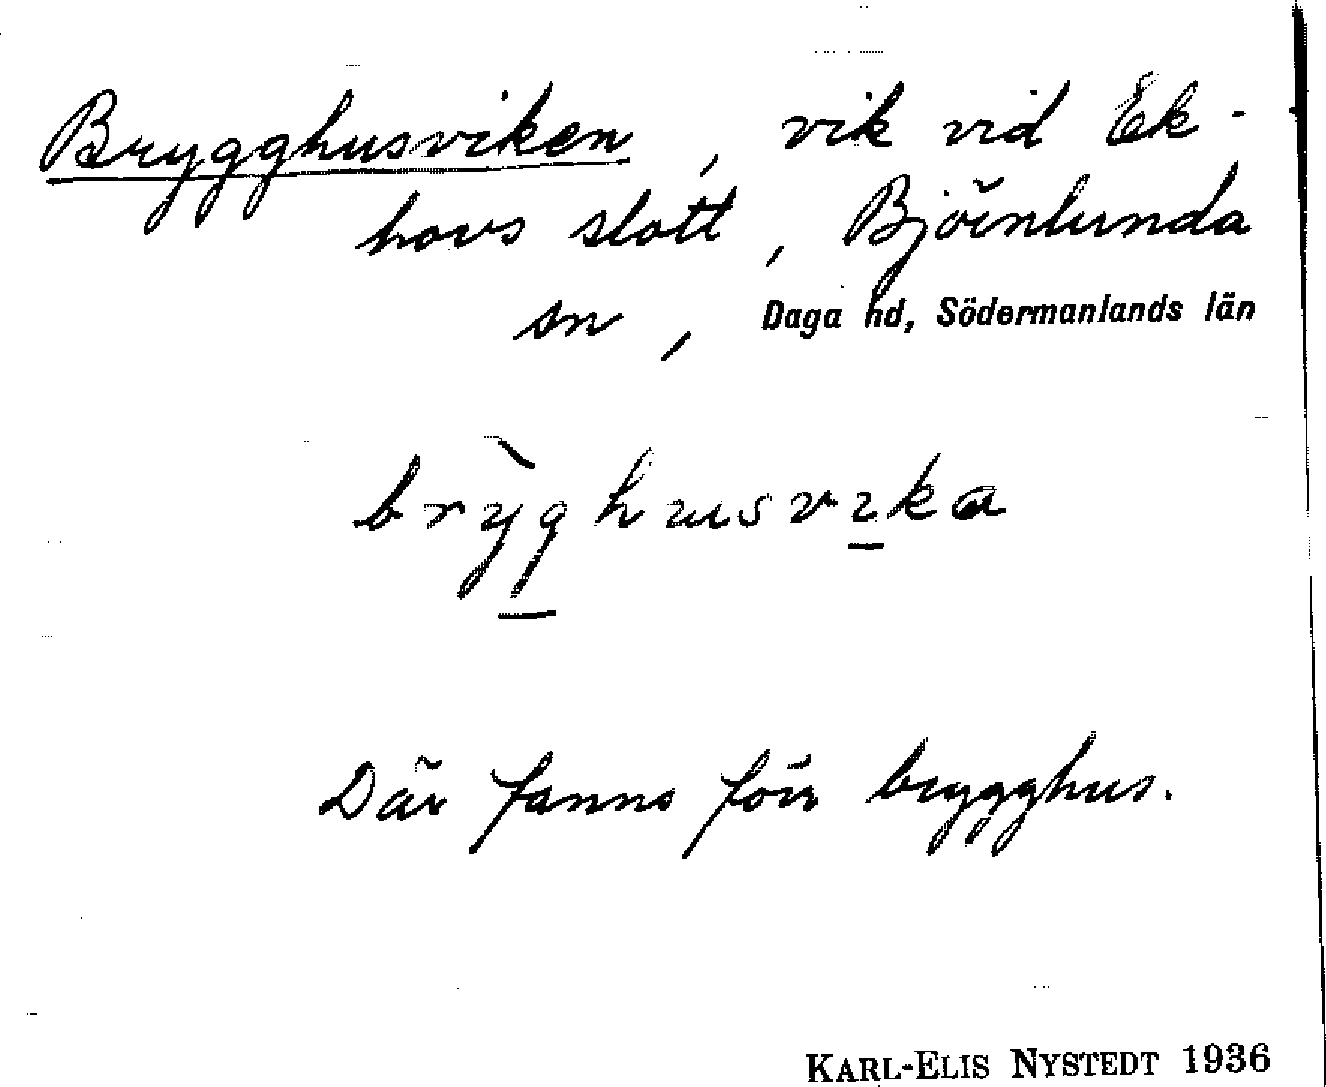 Brygghusviken, vik vid Ek-
hovs slott, Björnlunda
sn, Daga hd, Södermanlands län
brỳghusvika
Där fanns förr brygghus.
KARL-ELIS NYSTEDT 1936